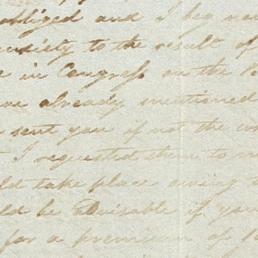 obliged and I beg
anxiety to the result of
in Congress on the
already mentioned
sent you if not the
I requested them to
take place owing
be advisable if you
for a premium of